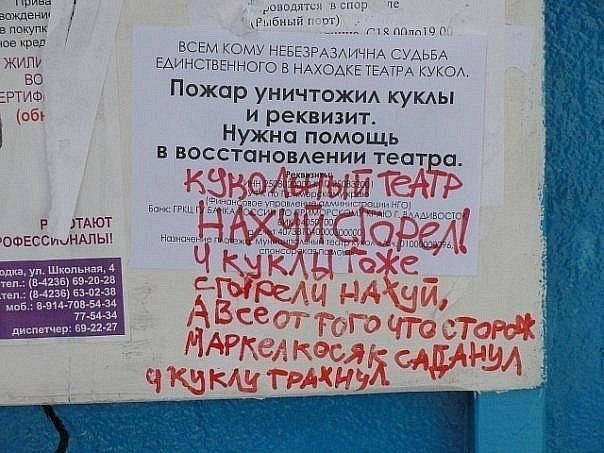 Прива
вождени
в покупк
ное кред
ЖИЛИ
ВО
ЕРТИФ
(обн
РАБОТАЮТ
РОФЕССИОНАЛЫ!
одка, ул. Школьная, 4
тел.: (8-4236) 69-20-28
тел.: (8-4236) 63-02-38
моб.: 8-914-708-54-34
77-54-34
диспетчер: 69-22-27
роводятся в спор ле
(Рыбный порт)
С18.00до19.00
ВСЕМ КОМУ НЕБЕЗРАЗЛИЧНА СУДЬБА
ЕДИНСТВЕННОГО В НАХОДКЕ ТЕАТРА КУКОЛ.
Пожар уничтожил куклы
и реквизит.
Нужна помощь
в восстановлении театра.
Реквизиты
ИНН
(Финансовое управление администрации НГО)
Банк: ГРКЦ ГУ БАНКА РОССИИ ПО ПРИМОРСКОМУ КРАЮ Г. ВЛАДИВОСТОК
Назначение Муниципальный театр кукол
спонсорская помощь
КУКОЛЬНЫЙ ТЕАТР
НАХУЙ СГОРЕЛ!
И КУКЛЫ ТОЖЕ
СГОРЕЛИ НАХУЙ,
А ВСЕ ОТ ТОГО ЧТО СТОРОЖ
МАРКЕЛ КОСЯК САДАНУЛ
И КУКЛУ ТРАХНУЛ